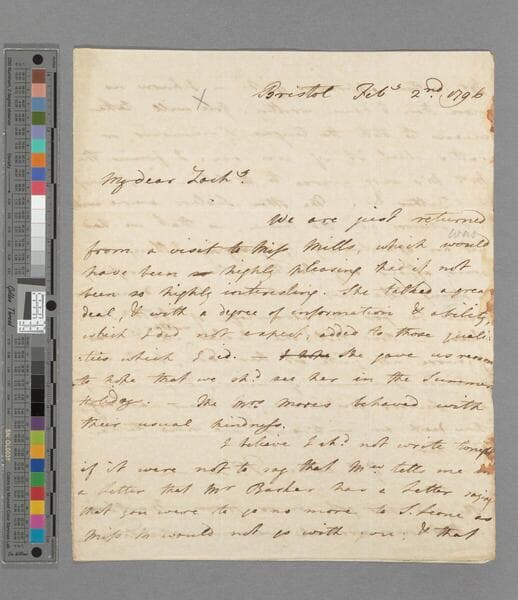 Bristol Feby 2nd. 1796
My dear Zachy.
We are just returned
from a visit to Miss Mills, which would
have been so highly pleasing had it not
been so highly interesting. She talked a great
deal, & with a degree of information & ability,
which I did not expect, added to those quali-
ties which I did. – She gave us reason
to hope that we shd. see her in the Summer
– The Mrs. Mores behaved with
their usual kindness.
I believe I shd. not wrote
if it were not to say that tell me in
a letter that Mr Barber has a letter saying
that you were to go no more to S. Leone as
Miss M would not go with you; & that